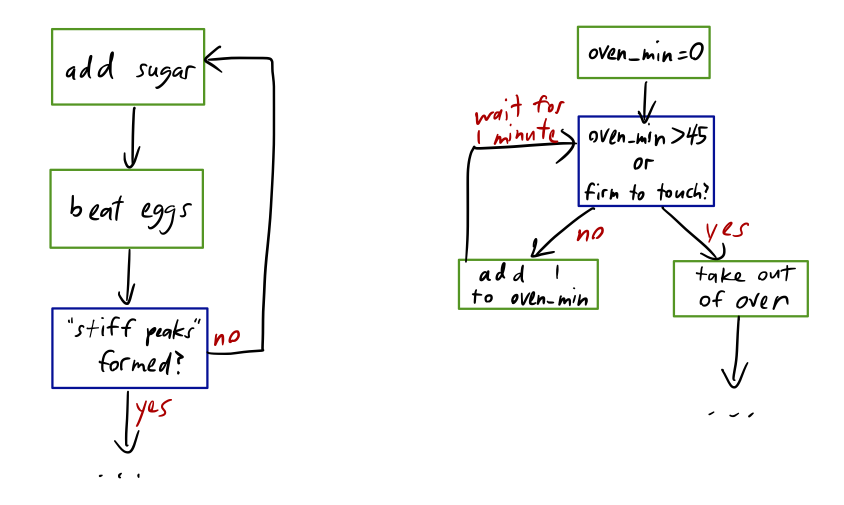 add sugar
beat eggs
"stiff peaks"
formed?
no
yes
...
oven_min=0
wait for
1 minute
oven_min >45
or
firm to touch?
no
yes
add 1
to oven_min
take out
of oven
...